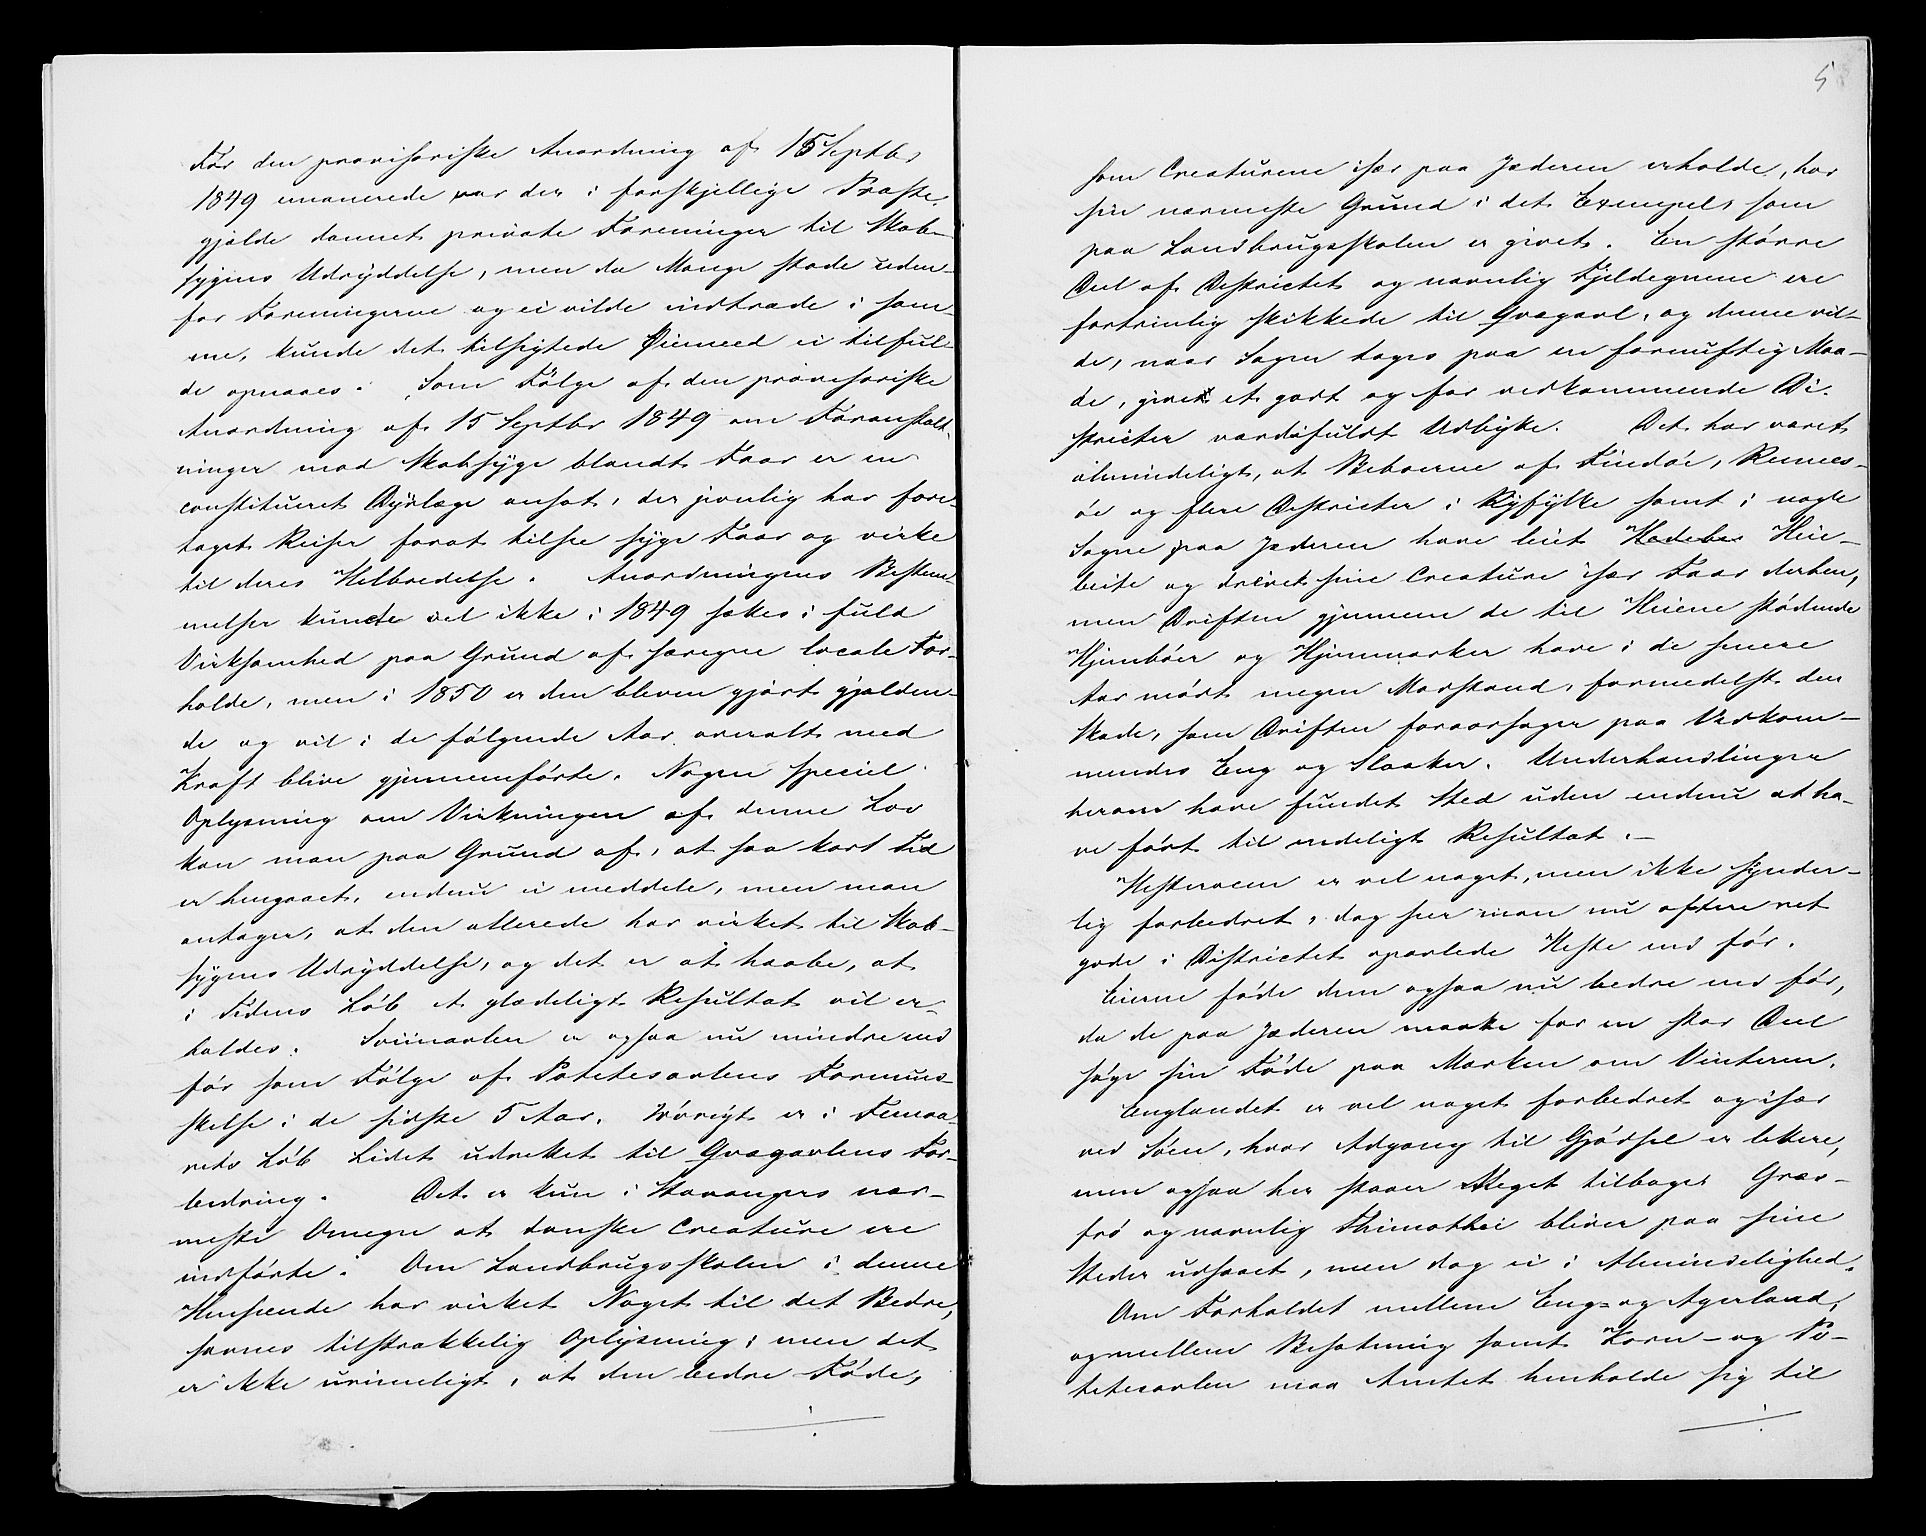 Før den provisoriske Anordning af 15 Septbr
1849 emanerede var der i forskjellige Præste-
gjælde dannet private Foreninger til Skab-
sygens Udryddelse, men da Mange stode uden-
for Foreningerne og ei vilde indtræde i sam-
me, kunde det tilsigtede Øiemeed ei tilful-
de opnaaes. Som Følge af den provisoriske
Anordning af 15 Septbr 1849 om Foranstalt-
ninger mod Skabsyge blandt Faar er en
constitueret Dyrlæge ansat, der jevnlig har fore-
taget Reiser forat tilsee syge Faar og virke
til deres Helbredelse. Anordningens Bestem-
melser kunde vel ikke i 1849 sættes i fuld
Virksomhed paa Grund af særegne locale For-
holde, men i 1850 er den bleven gjort gjælden-
de og vil i de følgende Aar overalt med
Kraft blive gjennemførte. Nogen speciel
Oplysning om Virkningen af denne Lov
kan man paa Grund af, at saa kort Tid
er hengaaet, endnu ei meddele, men man
antager, at den allerede har virket til Skab-
sygens Udryddelse, og det er at haabe, at
i Tidens Løb et glædeligt Resultat vil er-
holdes. Sviinavlen er ogsaa nu mindre end
før som Følge af Potetesavlens Formind-
skelse i de sidste 5 Aar. Iøvrigt er i Femaa-
rets Løb Lidet udrettet til Qvægavlens For-
bedring. Det er kun i Stavangers nær-
meste Omegn at danske Creature ere
indførte. Om Landbrugsskolen i denne
Henseende har virket Noget til det Bedre,
savnes tilstrækkelig Oplysning; men det
er ikke urimeligt, at den bedre Føde,
5
som Creaturene især paa Jæderen erholde, har
sin nærmeste Grund i det Exempel, som
paa Landbrugsskolen er givet. En større
Deel af Districtet og navnlig Fjeldegnene ere
fortrinlig skikkede til Qvægavl, og denne vil-
de, naar Sagen toges paa en fornuftig Maa-
de, givet et godt og for vedkommende Di-
stricter værdifuldt Udbytte. Det har været
almindeligt, at Beboerne af Findøe, Rennes-
øe og flere Districter i Ryfylke samt i nogle
Sogne paa Jæderen have leiet Hedebei Heie-
beite og drevet sine Creature især Faar derhen,
men Driften gjennem de til Heiene stødende
Hjembøer og Hjemmarker have i de senere
Aar mødt megen Modstand, formedelst den
Skade, som Driften foraarsager paa Vedkom-
mendes Eng og Slaatter. Underhandlinger
herom have fundet Sted uden endnu at ha-
ve ført til endeligt Resultat.—
Hesteracen er vel noget, men ikke synder-
lig forbedret, dog seer man nu oftere ret
gode i Districtet opavlede Heste end før.
Eierne føde dem ogsaa nu bedre end før,
da de paa Jæderen maatte for en stor Deel
søge sin Føde paa Marken om Vinteren.
Englandet er vel noget forbedret og især
ved Søen, hvor Adgang til Gjødsel er lettere,
men ogsaa her staaer Meget tilbage. Græs-
frø og navnlig Thimothei bliver paa sine
Steder udsaaet, men dog ei i Almindelighed.
Om Forholdet mellem Eng- og Agerland,
og mellem Besætning samt Korn- og Po-
tetesavlen maa Amtet henholde sig til